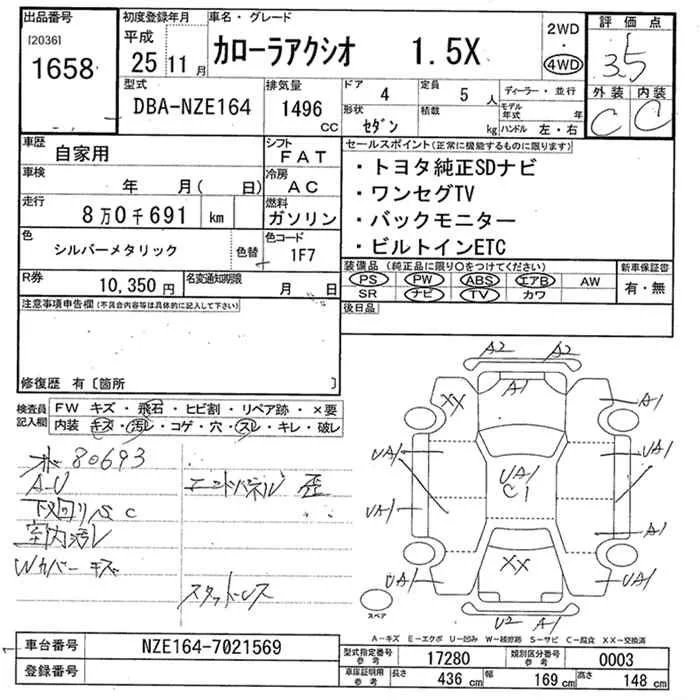 出品番号 初度登録年月 車名・グレード 評価点
[2036] 平成 カローラアクシオ 1.5X 2WD ・ 4WD 3.5
1658 25年11月 外装 内装
型式 排気量 ドア 4 定員 5人 ディーラー・並行 C C
DBA-NZE164 1496cc 形状 セダン 積載 kg モデル年式 年
ハンドル 左・右
車歴 自家用 シフト FAT セールスポイント(正常に機能するものに限ります)
車検 年 月(日) 冷房 AC ・トヨタ純正SDナビ
走行 8万0千691 km 燃料 ガソリン ・ワンセグTV
色 シルバーメタリック 色替 色コード 1F7 ・バックモニター
・ビルトインETC
R券 10,350円 名変通知期限 月 日 装備品(純正品に限り○をつけてください) 新車保証書
PS PW ABS エアB AW 有・無
SR ナビ TV カワ
注意事項申告欄(不具合内容等は具体的に記入して下さい) 後日品
修復歴 有〔箇所 〕
検査員記入欄 FW キズ・飛石・ヒビ割・リペア跡・×要
内装 キズ・汚レ・コゲ・穴・スレ・キレ・破レ
80693
A-U エンドパネル 歪
下回り S C
室内汚レ
Wカバー キズ
スタッドレス
A2 A2
A1
XX A1
UA1 UA1
UA1
C1
UA1 A1
XX
UA1 UA1
U2 A1
スペア
A-キズ E-エクボ U-凹み W-補修跡 S-サビ C-腐食 XX-交換済
車台番号 NZE164-7021569 型式指定番号 参考 17280 類別区分番号 参考 0003
登録番号 車庫証明用 参考 長さ 436cm 幅 169cm 高さ 148cm